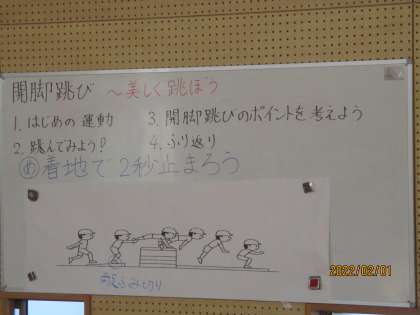 開脚跳び ～美しく跳ぼう
1. はじめの運動
2. 跳んでみよう?
3. 開脚跳びのポイントを考えよう
4. ふり返り
め 着地で2秒止まろう
両足ふみきり
2022/02/01